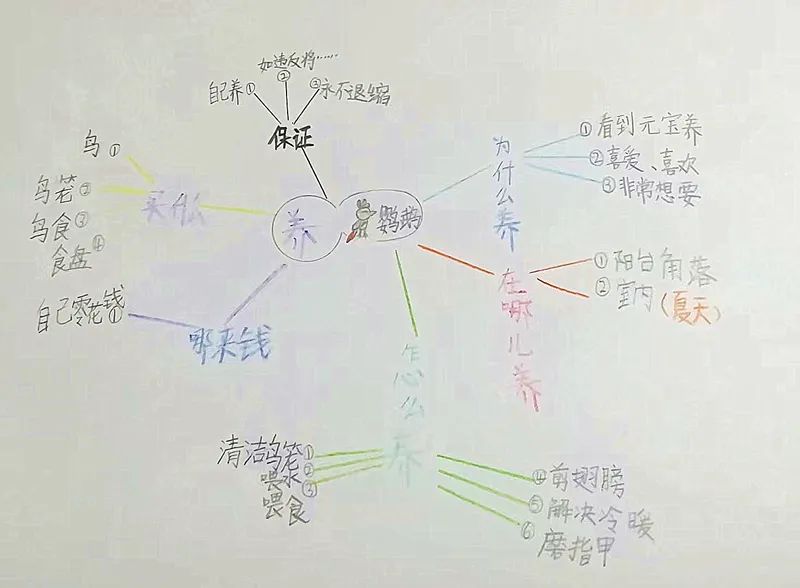 养鹦鹉
保证
自己养①
②如违反将……
③永不退缩
为什么养
①看到元宝养
②喜爱、喜欢
③非常想要
在哪儿养
①阳台角落
②室内(夏天)
怎么养
清洁鸟笼①
喂水②
喂食③
④剪翅膀
⑤解决冷暖
⑥磨指甲
哪来钱
自己零花钱①
买什么
鸟①
鸟笼②
鸟食③
食盘④